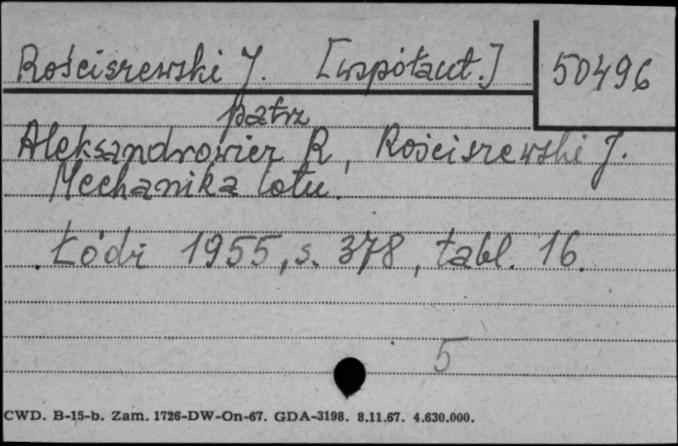 Rościszewski J. [współaut.] 50496
patrz
Aleksandrowicz R, Rościszewski J.
Mechanika lotu.
Łódź 1955, s. 378, tabl. 16.
5
CWD. B-15-b. Zam. 1726-DW-On-67. GDA-3198. 8.11.67. 4.630.000.